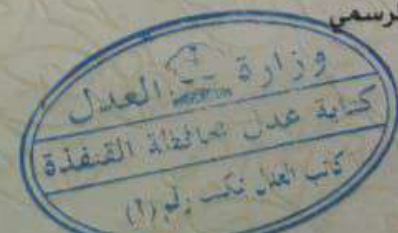 الرسمي
وزارة العدل
كتابة عدل محافظة القنفذة
كاتب العدل